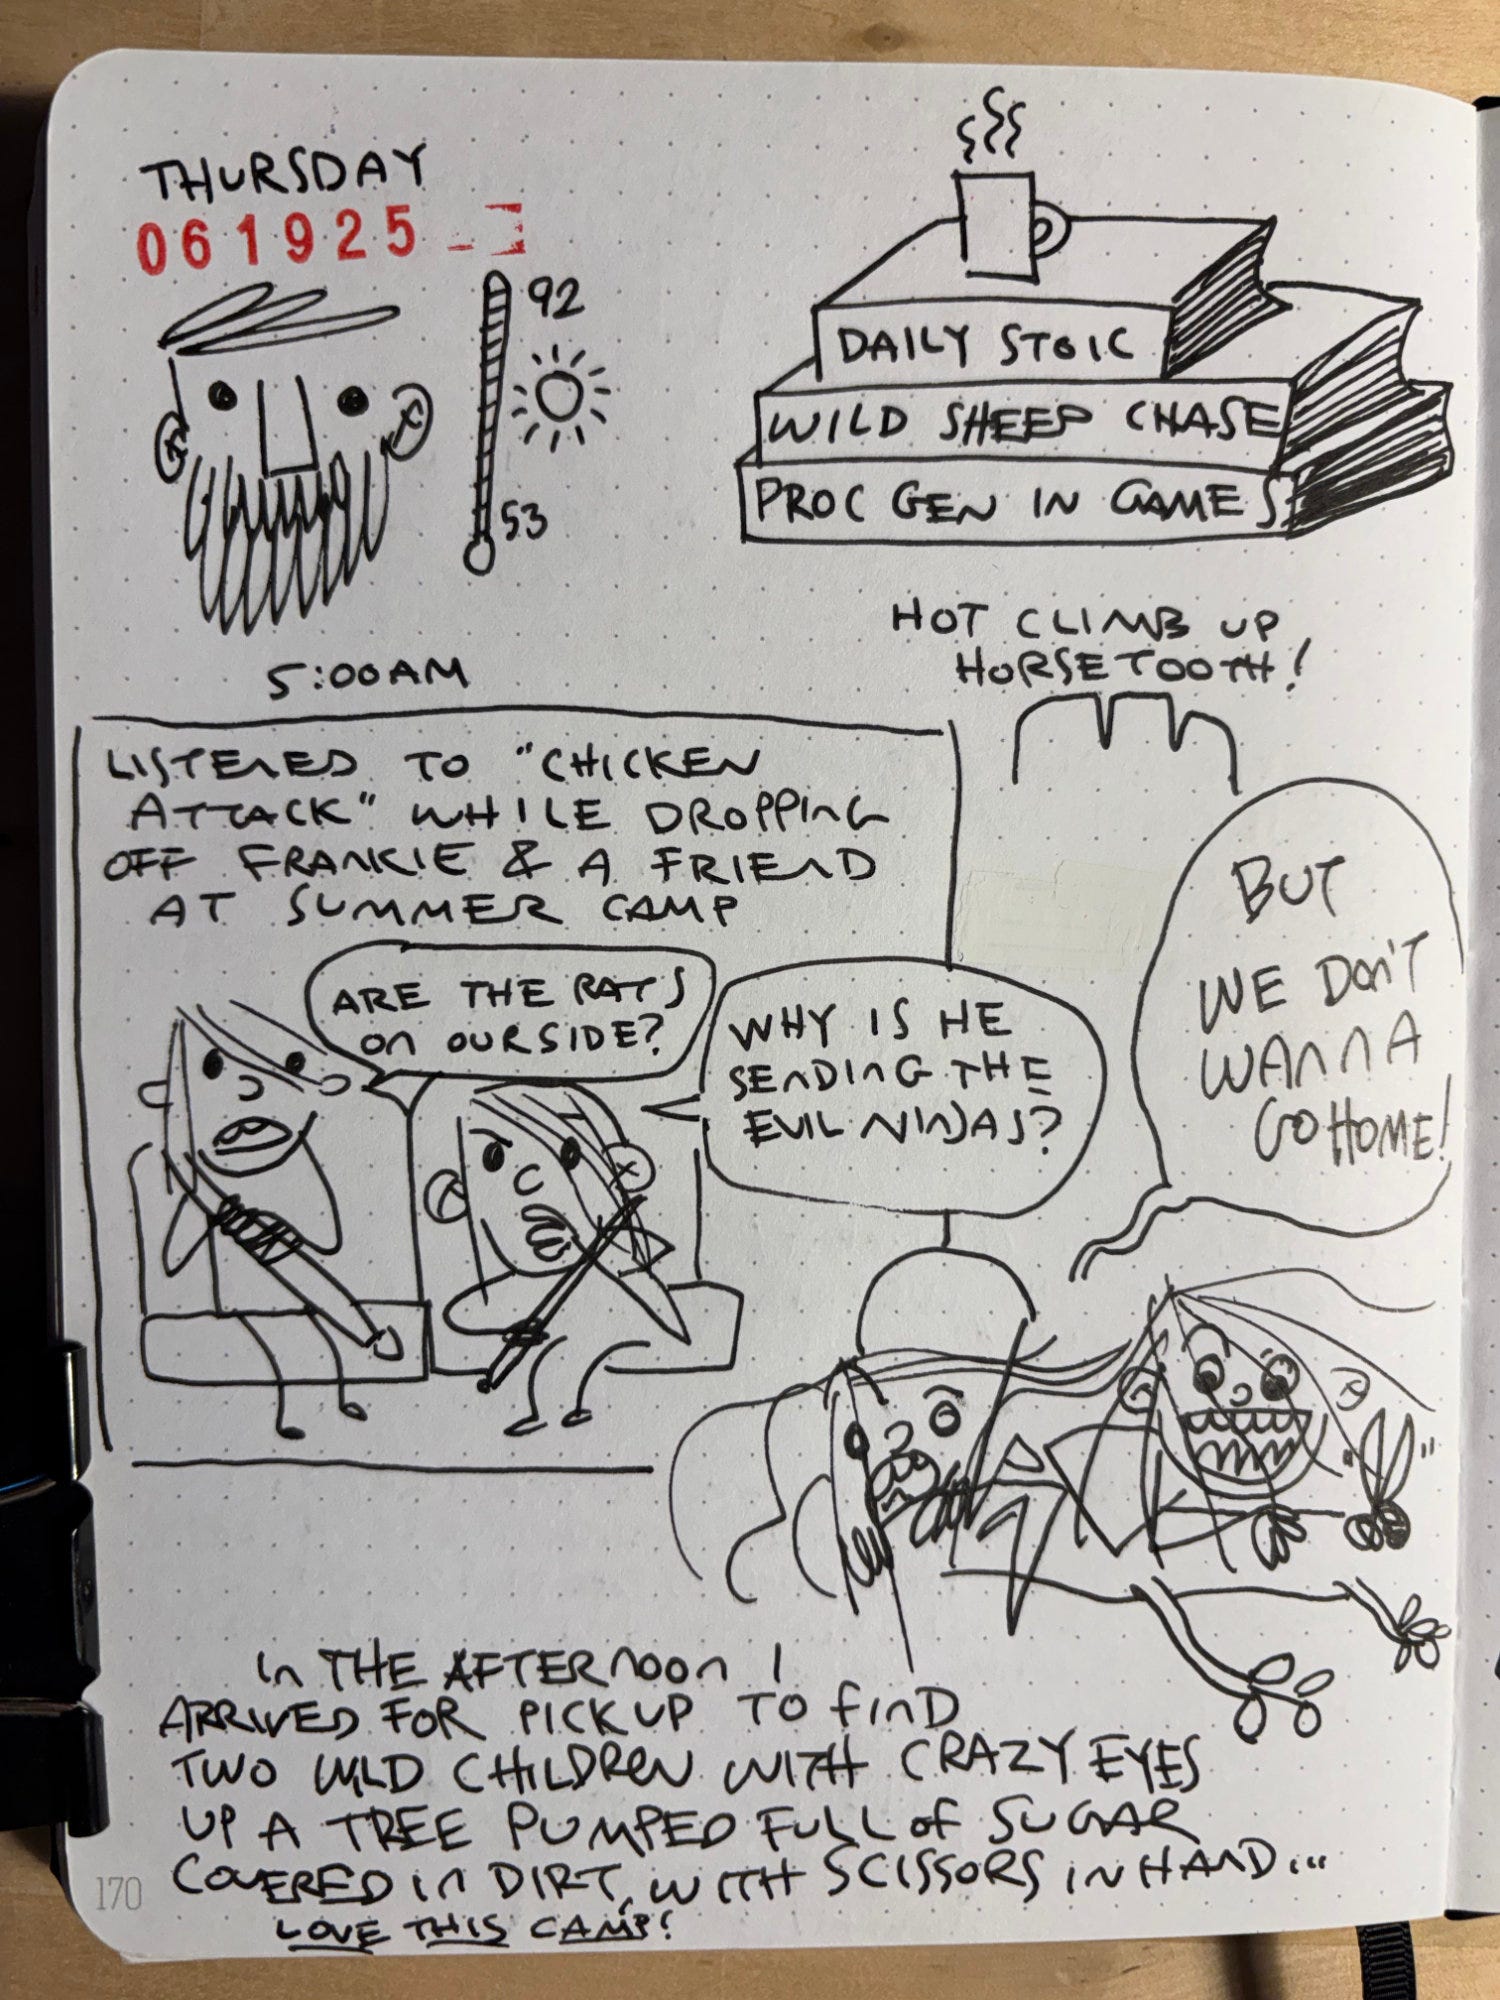 THURSDAY
061925
92
53
5:00AM
DAILY STOIC
WILD SHEEP CHASE
PROC GEN IN GAMES
HOT CLIMB UP
HORSETOOTH!
LISTENED TO "CHICKEN
ATTACK" WHILE DROPPING
OFF FRANKIE & A FRIEND
AT SUMMER CAMP
ARE THE RATS
ON OUR SIDE?
WHY IS HE
SENDING THE
EVIL NINJAS?
BUT
WE DON'T
WANNA
GO HOME!
IN THE AFTERNOON I
ARRIVED FOR PICKUP TO FIND
TWO WILD CHILDREN WITH CRAZY EYES
UP A TREE PUMPED FULL OF SUGAR
COVERED IN DIRT, WITH SCISSORS IN HAND...
LOVE THIS CAMP!
170